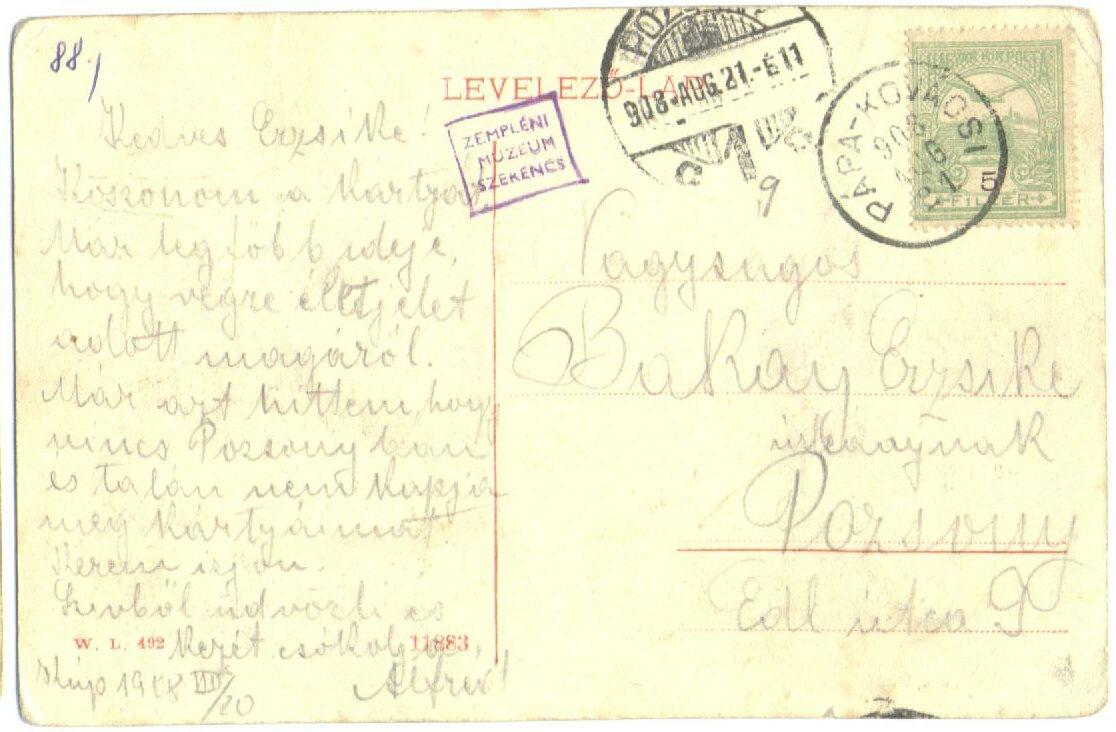 88.,
LEVELEZŐ-LAP
ZEMPLÉNI
MÚZEUM
SZERENCS
POZSONY
908-AUG.21.-É11
PÁPA-KOVÁCSI
908
AUG
21
MAGYAR KIR. POSTA
5
FILLÉR
Kedves Erzsike!
Köszönöm a kártyát
Már legföbb ideje,
hogy végre életjelet
adott magáról.
Már azt hittem, hogy
nincs Pozsonyban
és talán nem kapja
meg kártyáimat.
Kérem irjon.
Szivből üdvözli és
kezét csókolja,
Alfréd
1908 VIII/20
W. L. 492
11883
Nagyságos
Bakay Erzsike
úrleánynak
Pozsony
Edl utca 9
9